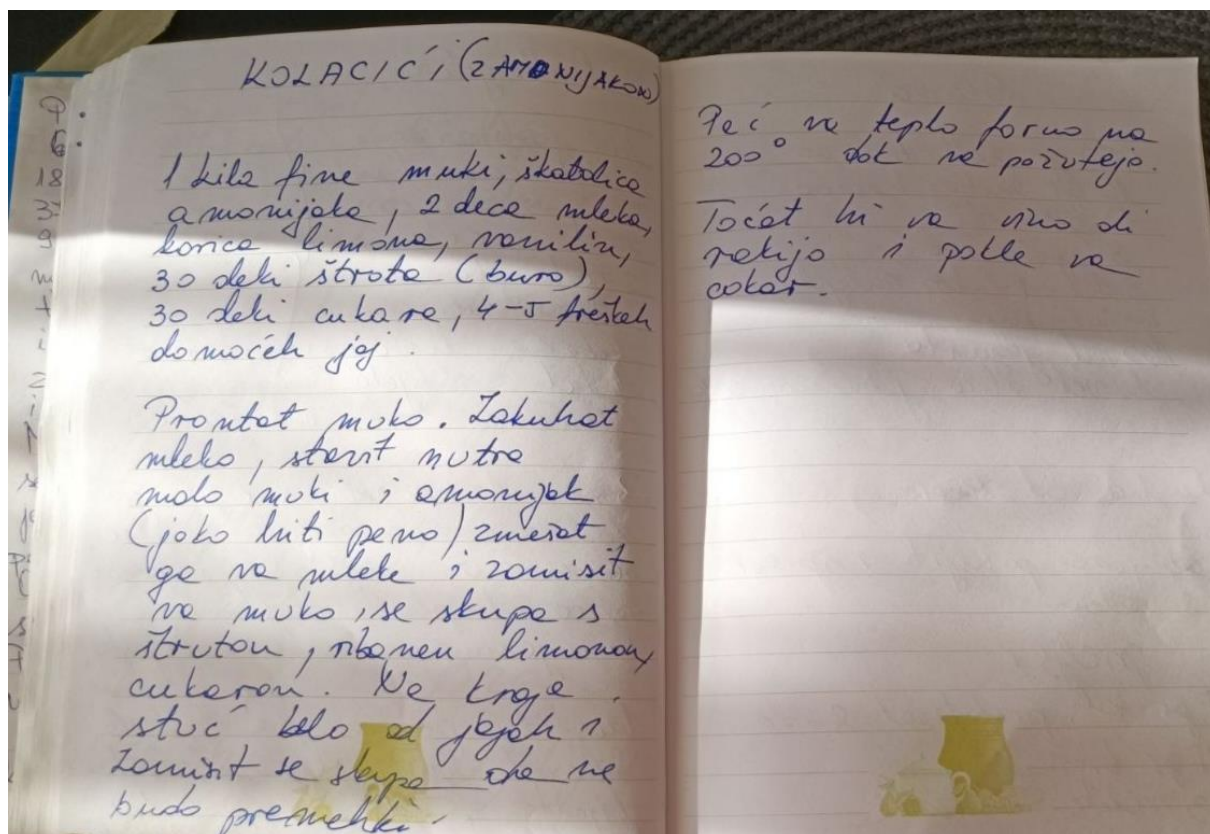 KOLACIĆI (Z AMONIJAKON)
1 kila fine muki, škatolica
amonijaka, 2 deca mleka,
korica limona, vanilin,
30 deki štrota (buro),
30 deki cukara, 4-5 freškeh
domaćeh jaj.
Prontat muko. Zakuhat
mleko, stavit nutra
malo muki i amonijak
(jako hiti peno) zmešat
ga va mleke i zamisit
va muko, se skupa s
štruton, ribanen limonon,
cukaron. Na kraje
stuć belo od jajah i
zamisit se skupa da ne
budo premehki.
Peć va teplo forno na
200° dok ne požutejo.
Točat hi va vino di
rakijo i potle va
cokar.